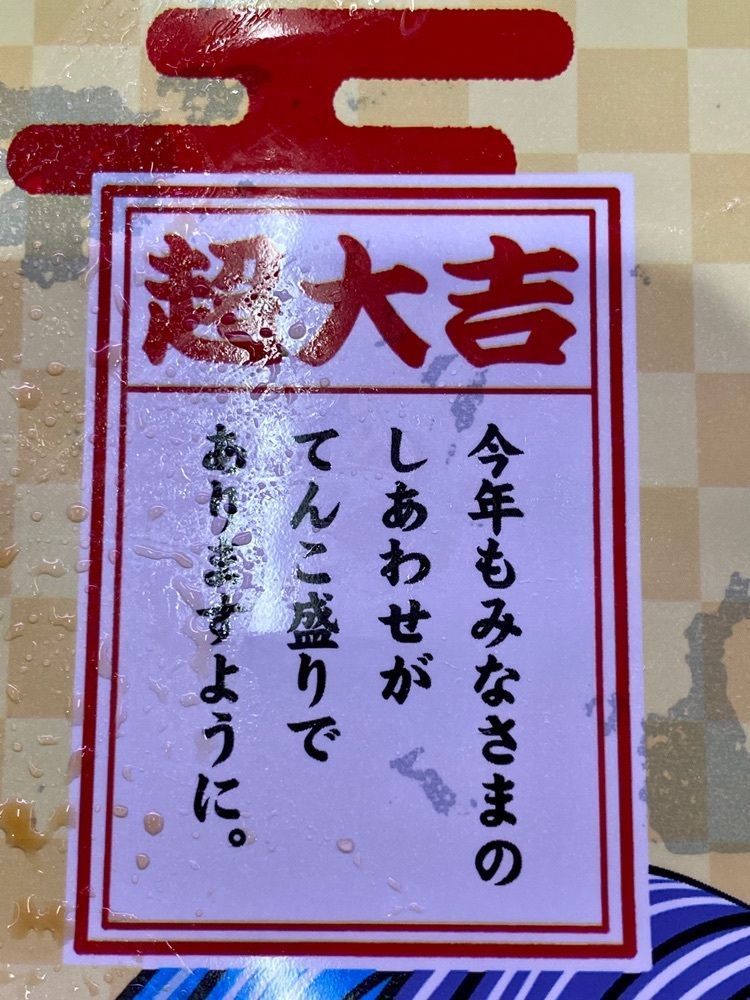 超大吉
今年もみなさまの
しあわせが
てんこ盛りで
ありますように。